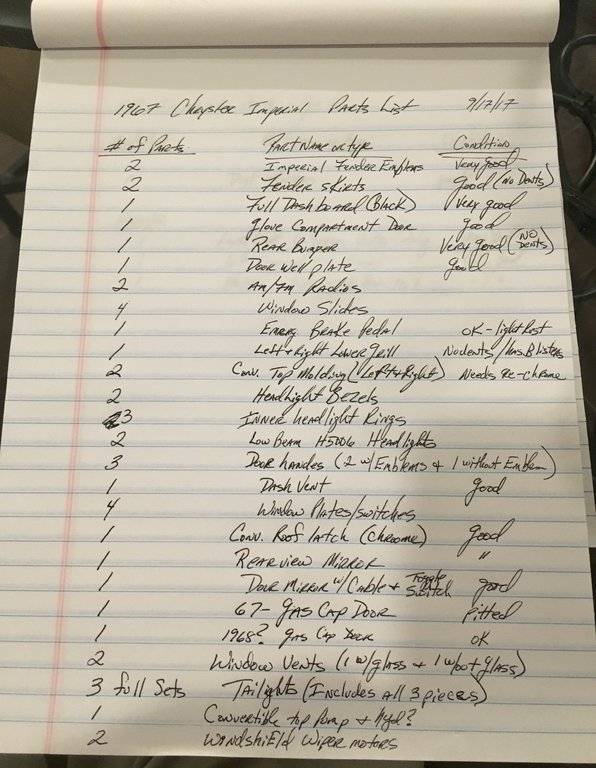 1967 Chrysler Imperial Parts List 9/17/17
# of Parts Part Name or type Condition
2 Imperial Fender Emblems Very good
2 Fender Skirts good (No Dents)
1 Full Dashboard (Black) Very good
1 Glove Compartment Door good
1 Rear Bumper Very good (No Dents)
1 Door Well plate good
2 AM/FM Radios
4 Window Slides
1 Emerg. Brake Pedal OK - light Rust
1 Left + Right Lower grill No dents / has Blisters
2 Conv. Top Molding (Left + Right) Needs Re-chrome
2 Headlight Bezels
3 Inner headlight Rings
2 Low Beam H5006 Headlights
3 Door handles (2 w/Emblems + 1 without Emblem)
1 Dash Vent good
4 Window Plates/switches
1 Conv. Roof latch (Chrome) good
1 Rearview Mirror "
1 Door Mirror w/ Cable + Toggle Switch good
1 67- Gas Cap Door Pitted
1 1968? Gas Cap Door OK
2 Window Vents (1 w/glass + 1 w/out glass)
3 full Sets Tailights (Includes all 3 pieces)
1 Convertible top Pump + Hyd?
2 Windshield Wiper motors